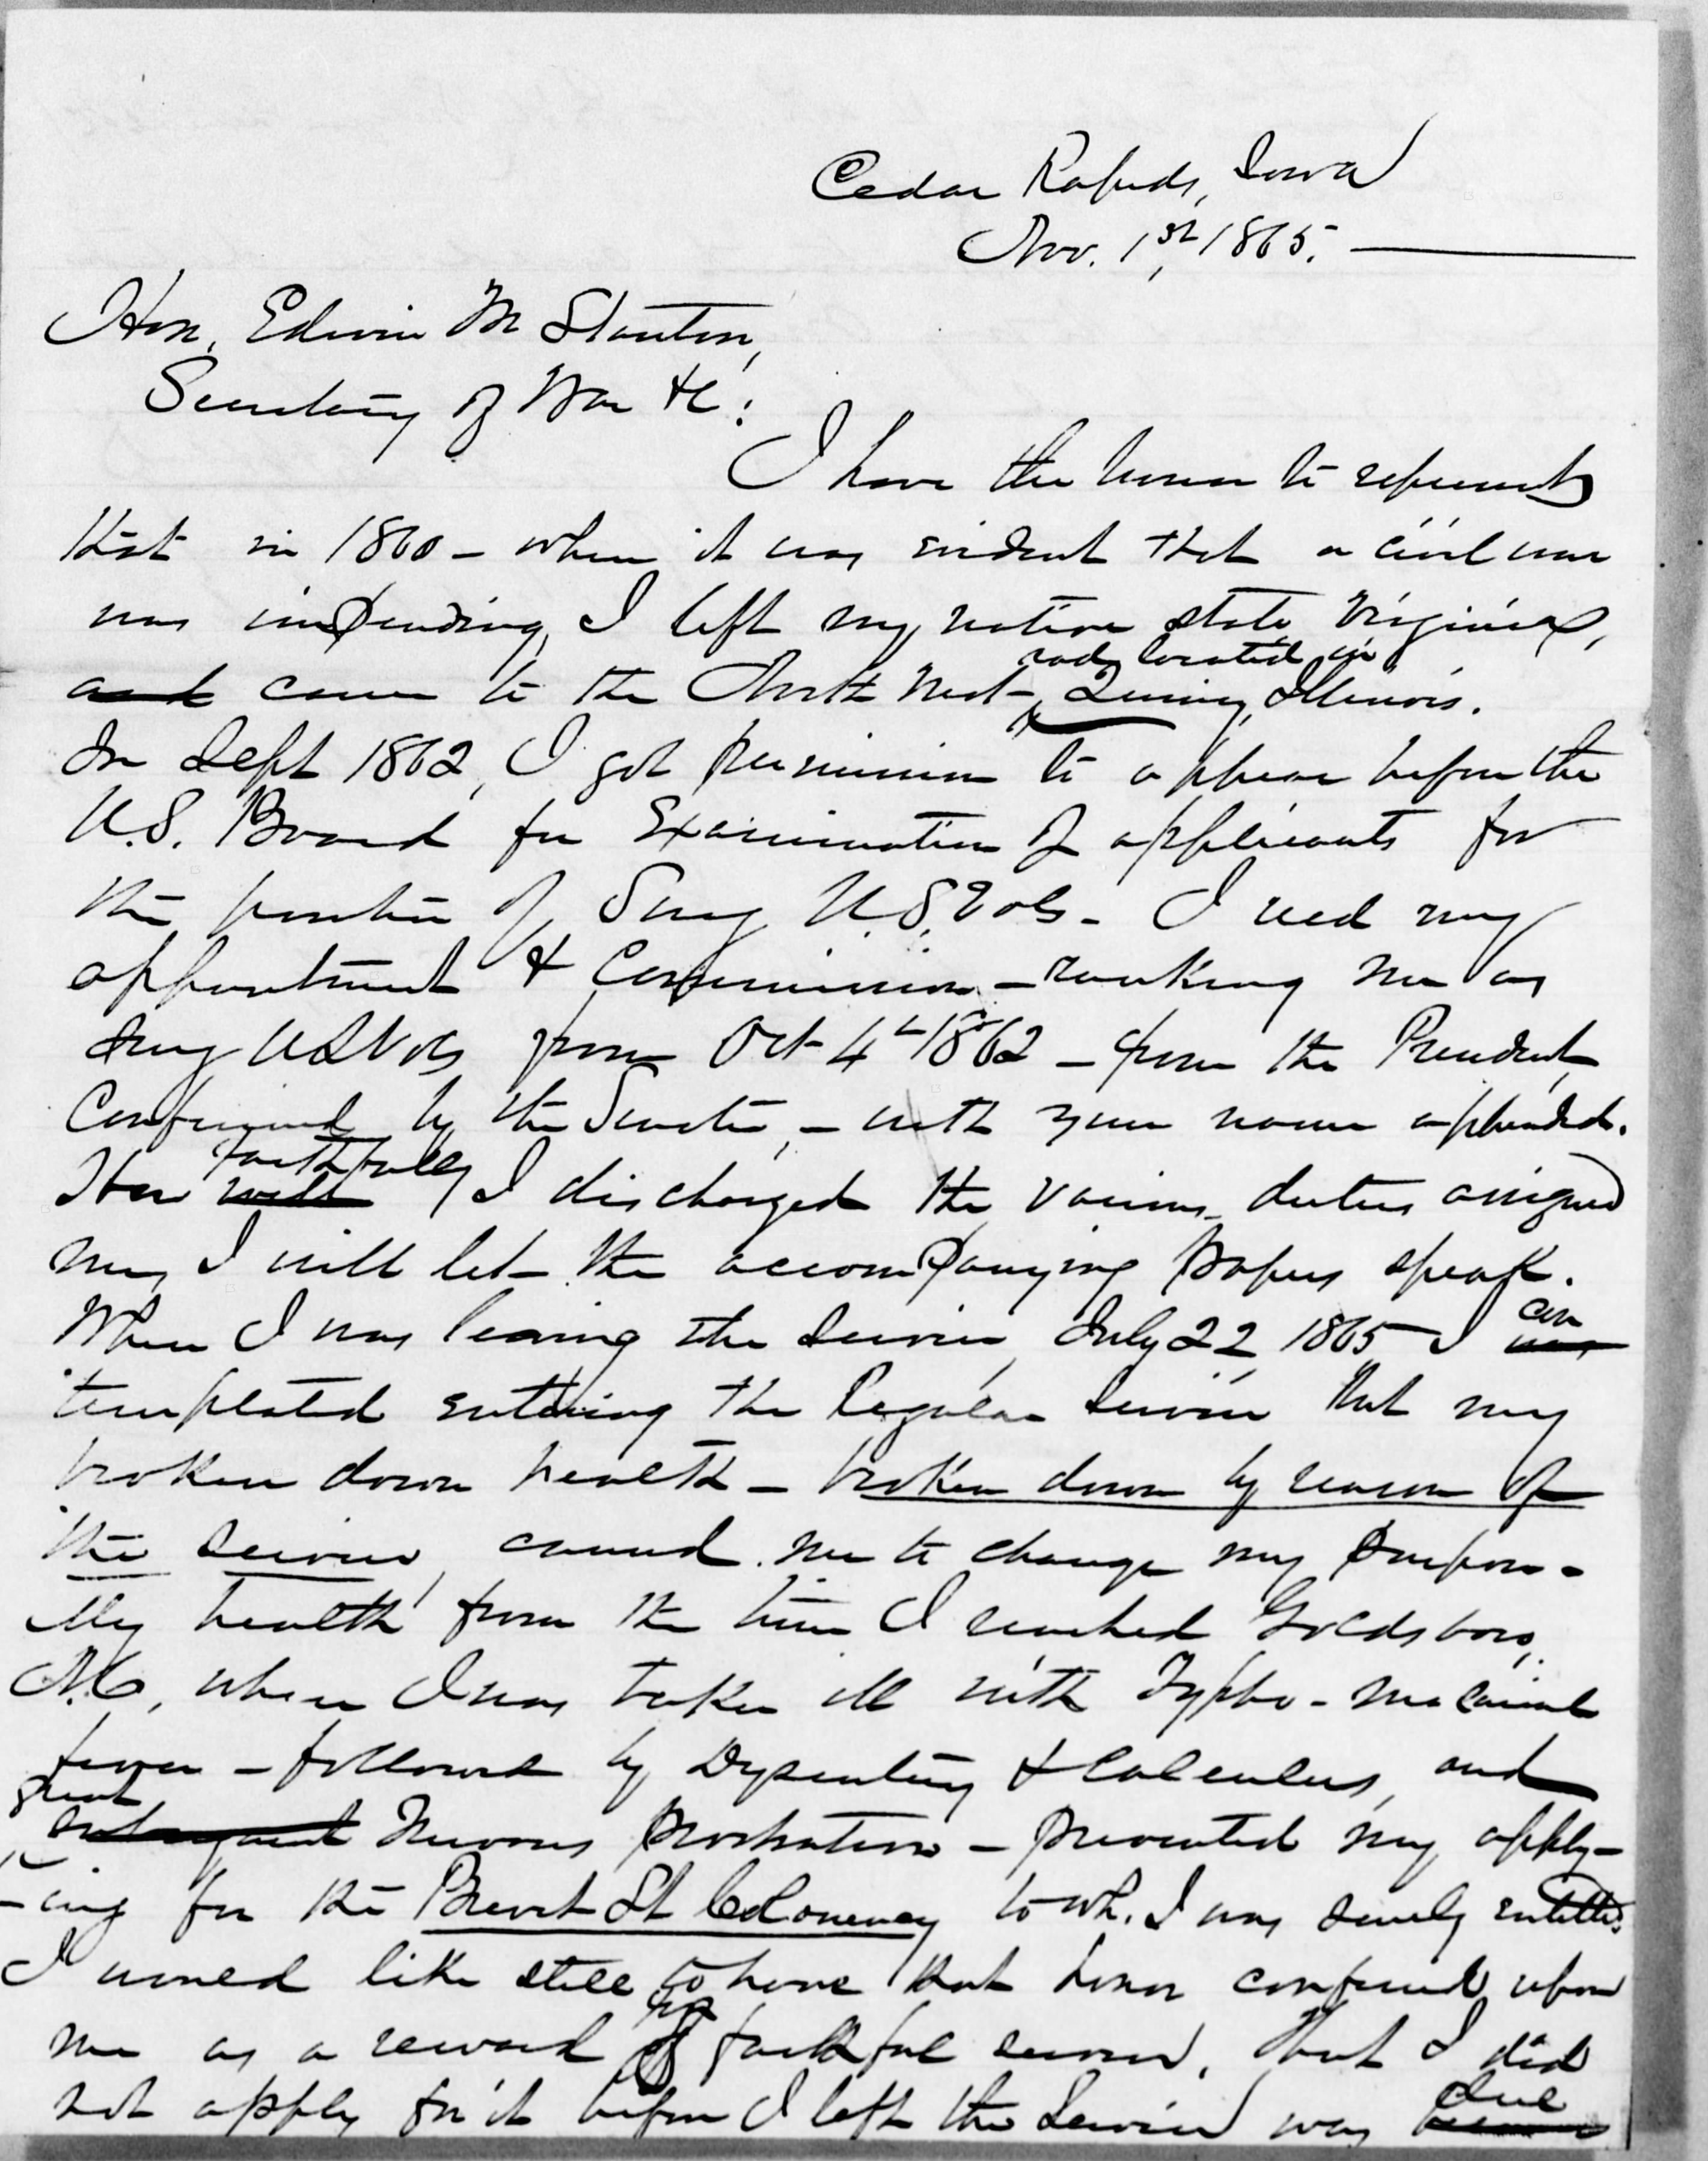 Cedar Rapids, Iowa
Nov. 1st, 1865.
Hon. Edwin M Stanton,
Secretary of War &c:
I have the honor to represent
that in 1860 - when it was evident that a civil war
was impending, I left my native state Virginia,
and located in
and came to the North West - Quincy, Illinois.
In Sept 1862, I got permission to appear before the
U.S. Board for Examination of applicants for
the position of Surg U.S. Vols - I recd my
appointment & Commission - ranking me as
Surg U S Vols from Oct 4th 1862 - from the President
Confirmed by the Senate, - with your name appended.
faithfully
How well I discharged the various duties assigned
me, I will let the accompanying papers speak.
con
When I was leaving the service, July 22, 1865 I was
templated entering the Regular service but my
broken down health - broken down by reason of
the service, caused me to change my purpose -
My health from the time I reached Goldsboro,
N.C., where I was taken ill with Typho-malarial
fever - followed by Dysentery & Calculus, and
great
subsequent Nervous prostration - prevented my apply-
-ing for the Brevet Lt Colonency to wh. I was surely entitled.
I would like still to have that honor conferred upon
for
me as a reward of faithful service. That I did
due
not apply for it before I left the service was